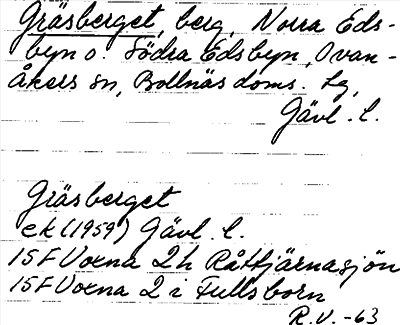 Gräsberget, berg, Norra Eds-
byn o. Södra Edsbyn, Ovan-
åkers sn, Bollnäs doms. tg,
Gävl. l.
Gräsberget
ek (1959) Gävl. l.
15F Voxna 2h Råttjärnasjön
15F Voxna 2i Fullsborn
R.V. -63